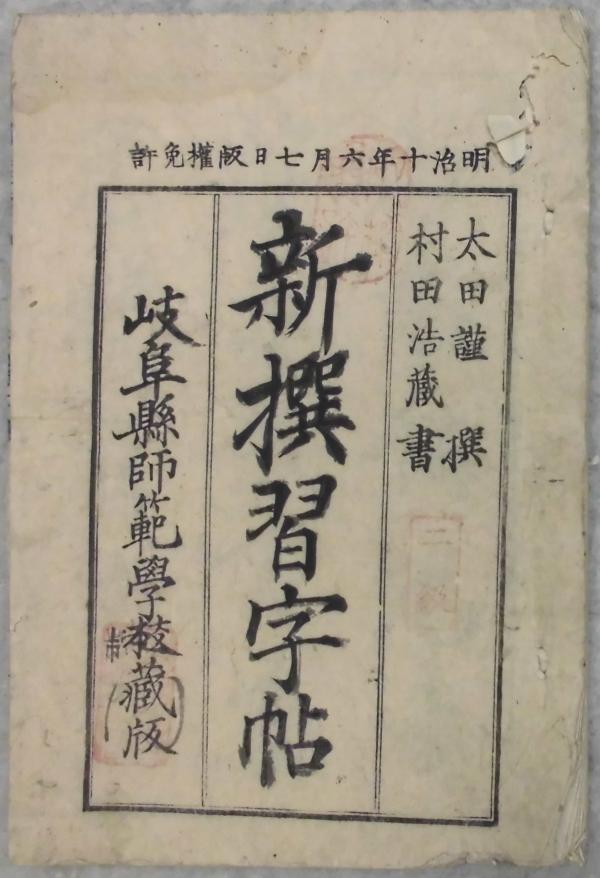 明治十年六月七日版權免許
太田謹 撰
村田浩藏 書
新撰習字帖
岐阜縣師範學校藏版
二級